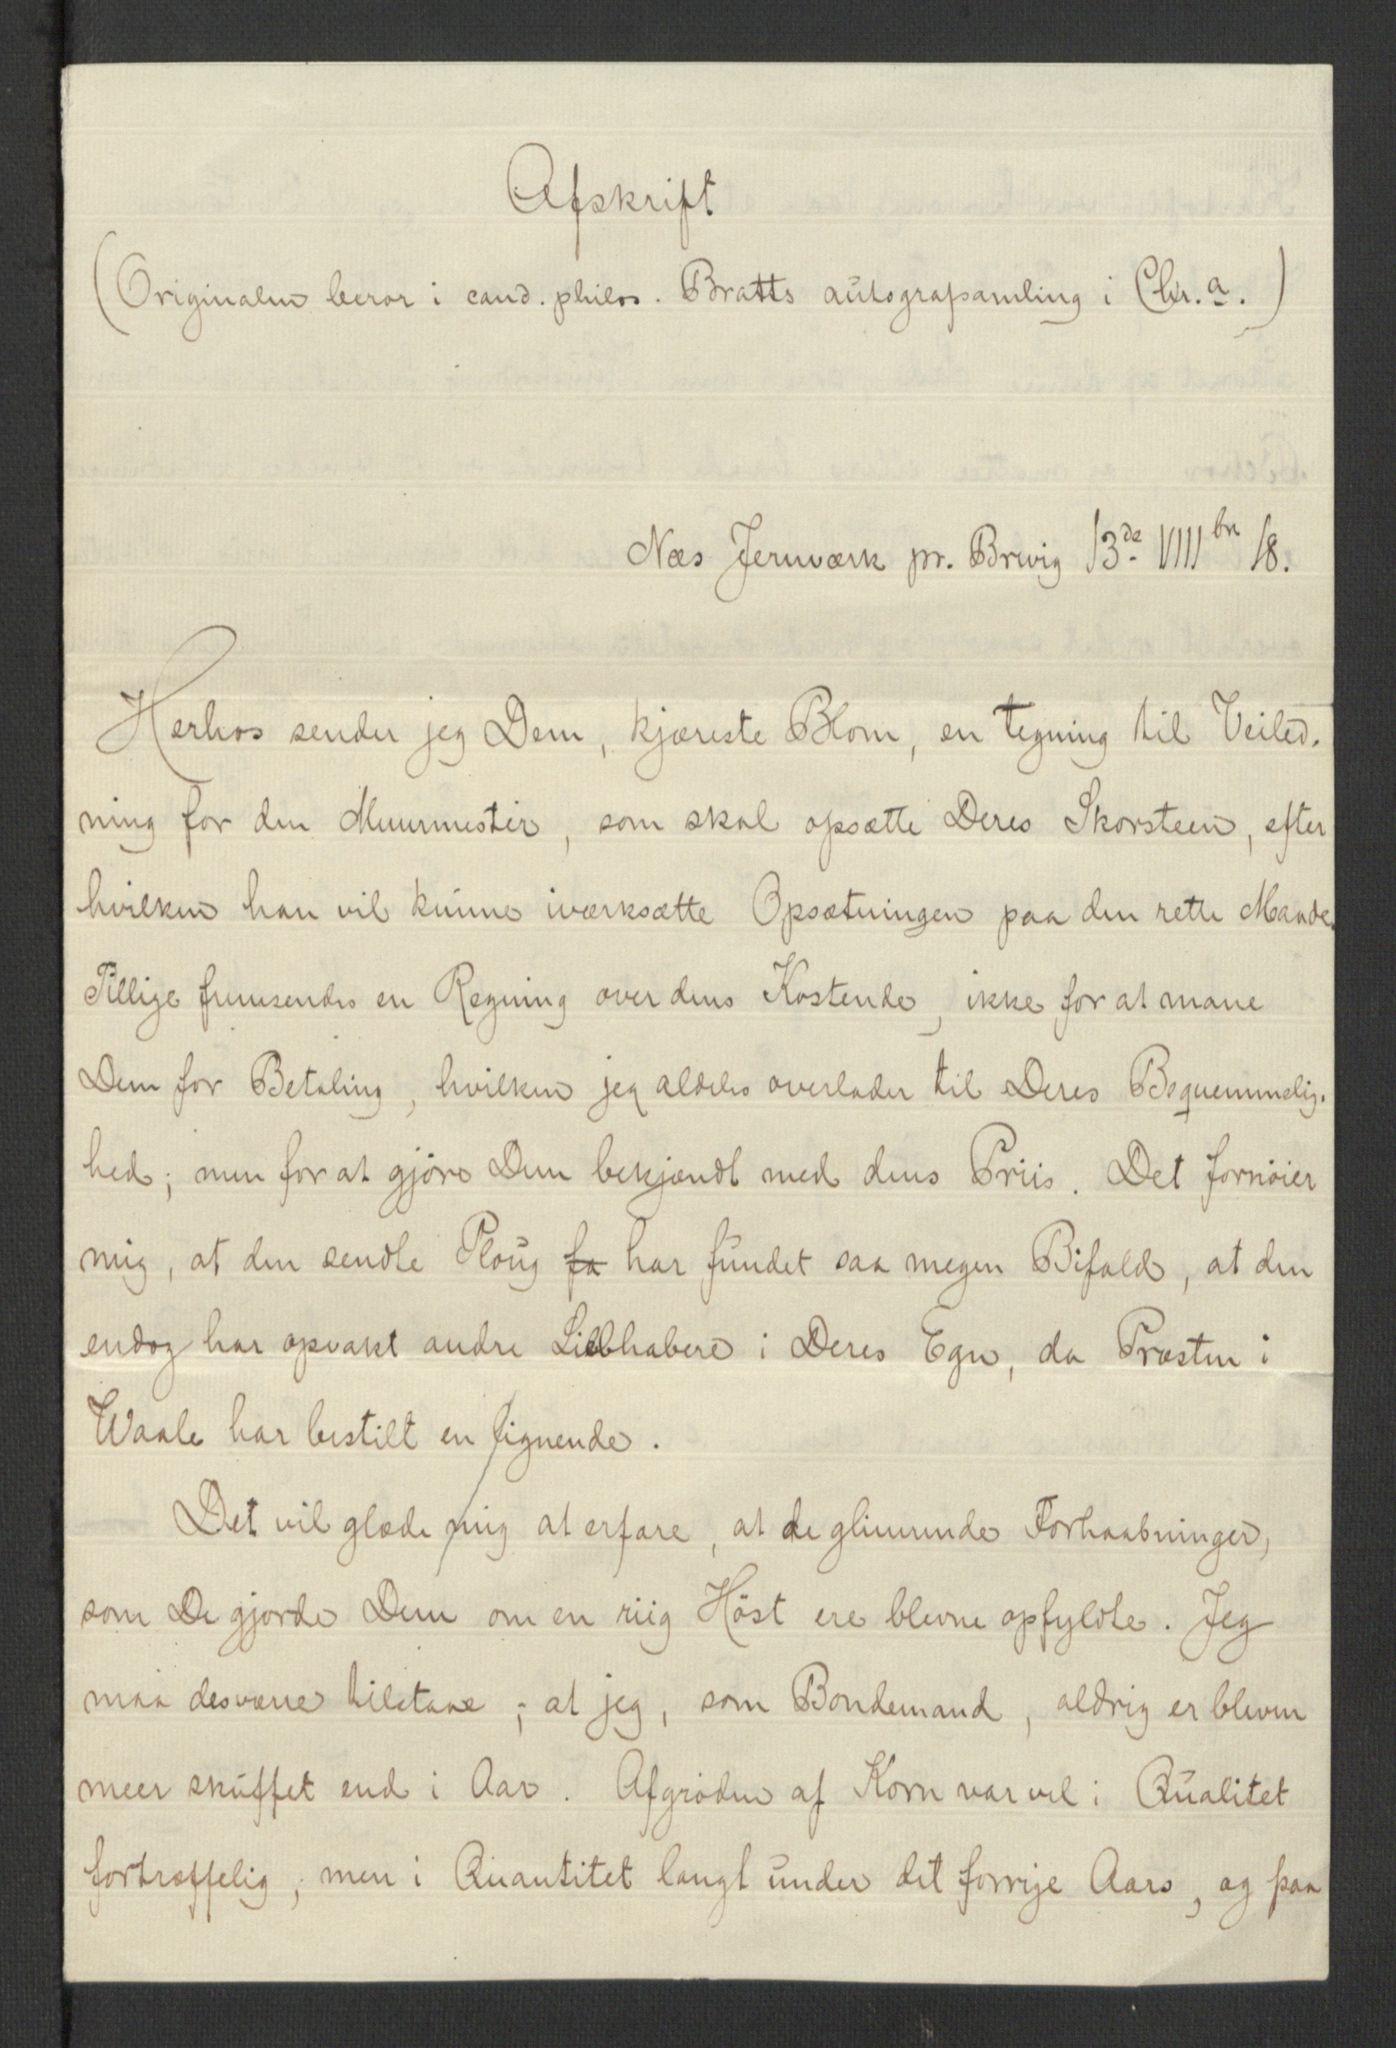 Afskrift
(Originalen beror i cand. philos. Bratts autografsamling i Chr.a.)
Næs Jernværk pr. Brevig 13de VIIIbr 18.
Herhos sender jeg Dem, kjæreste Blom, en Tegning til Veiled-
ning for den Muurmester, som skal opsætte Deres Skorsteen, efter
hvilken han vil kunne iværksætte Opsætningen paa den rette Maade.
Tillige fremsendes en Regning over dens Kostende, ikke for at mane
Dem for Betaling, hvilken jeg aldeles overlader til Deres Beqvemmelig-
hed; men for at gjöre Dem bekjændt med dens Priis. Det fornöier
mig, at den sendte Ploug fa har fundet saa megen Bifald, at den
endog har opvakt andre Liebhabere i Deres Egn, da Præsten i
Waale har bestilt en lignende.
Det vil glæde mig at erfare, at de glimrende Forhaabninger,
som De gjorde Dem om en riig Höst ere blevne opfyldte. Jeg
maa desværre tilstaae; at jeg, som Bondemand, aldrig er bleven
meer skuffet end i Aar. Afgröden af Korn var vel i Qualitet
fortræffelig, men i Quantitet langt under det forrige Aars, og paa